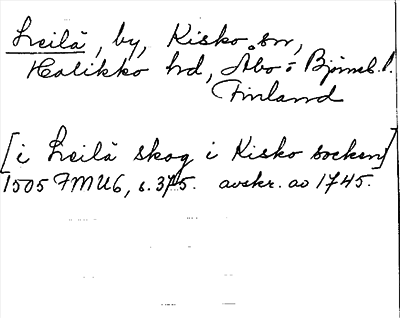 Leilä, by, Kisko sn,
Halikko hd, Åbo o Björneb. l.
Finland
[i Leilä skog i Kisko socken]
1505 FMU6, s. 375. avskr. av 1745.